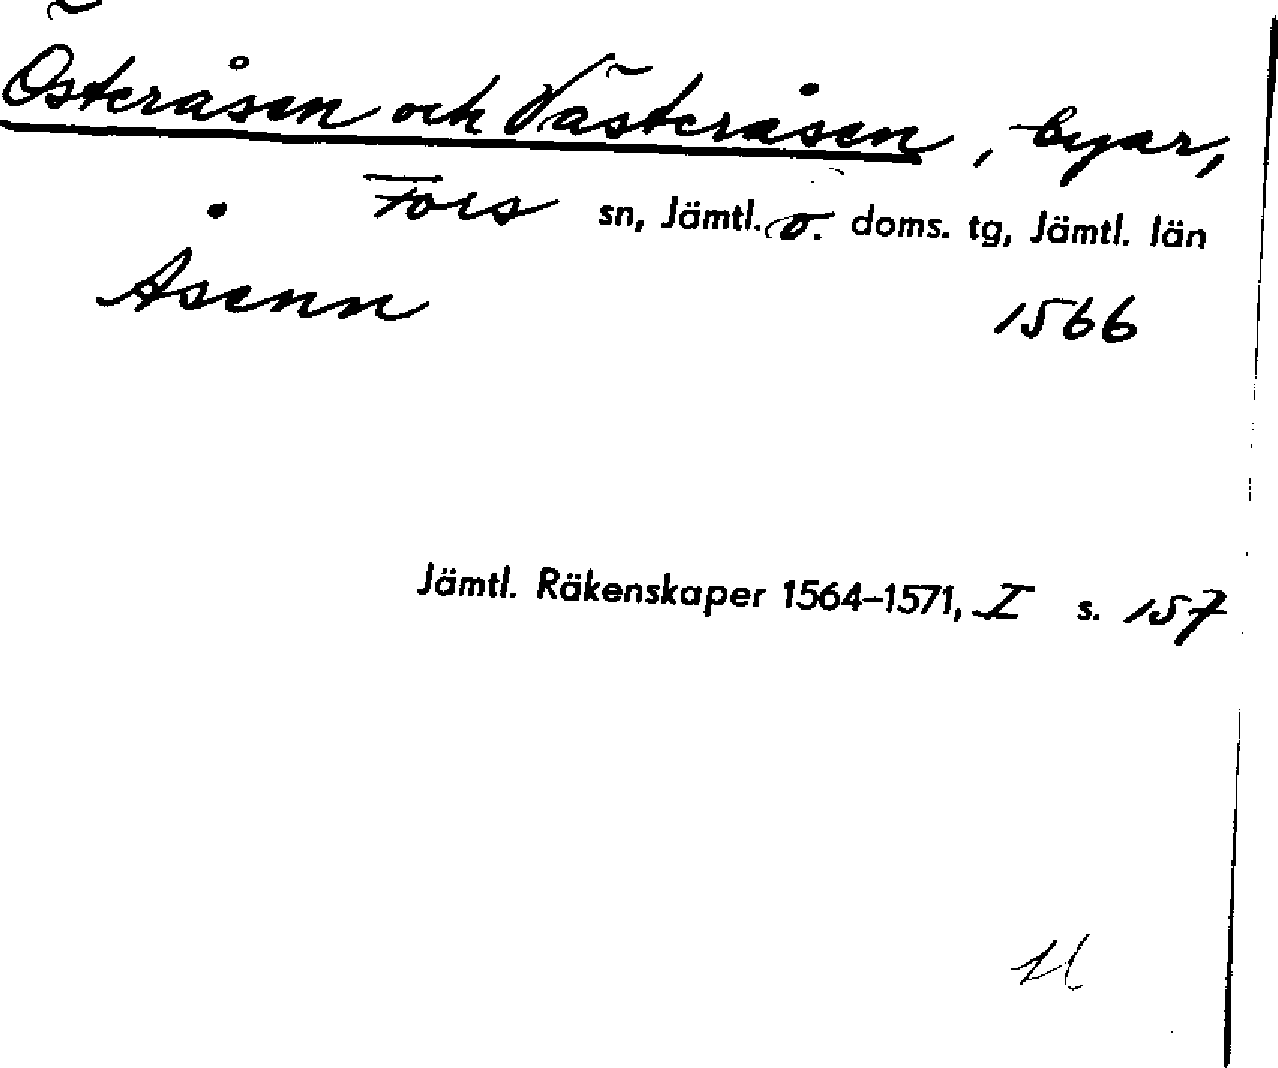 Österåsen och Västeråsen, byar,
Fors sn, Jämtl. ö. doms. tg, Jämtl. län
Åsenn 1566
Jämtl. Räkenskaper 1564–1571, I s. 157